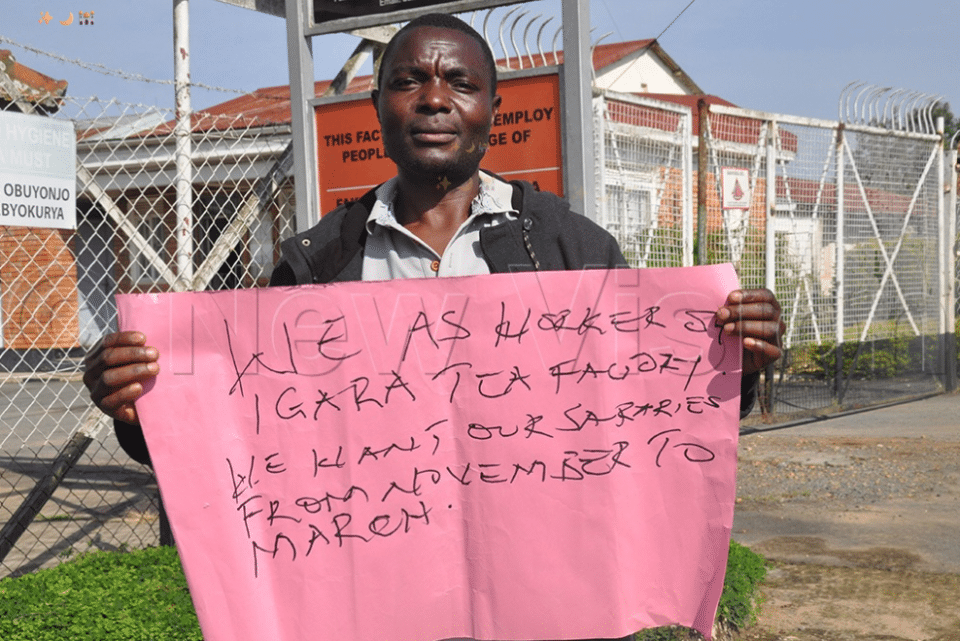 HYGIENE
A MUST
OBUYONJO
BYOKURYA
THIS FAC EMPLOY
PEOPL GE OF
New Vis
WE AS WORKERS OF
IGARA TEA FACTORY
WE WANT OUR SARARIES
FROM NOVEMBER TO
MARCH.